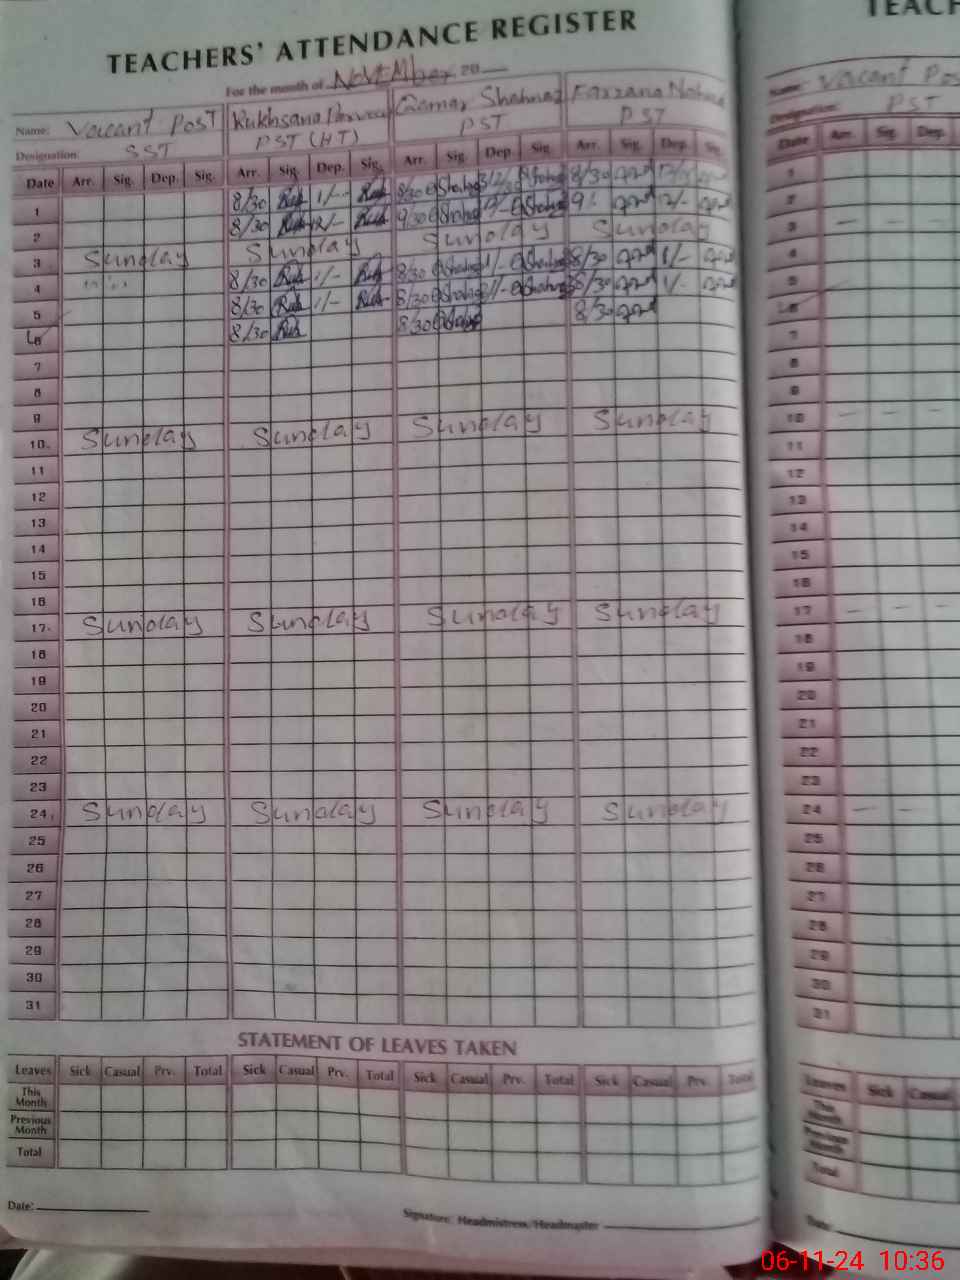 TEACHERS' ATTENDANCE REGISTER
TEACH
For the month of November 20
Name: Vacant Post Rukhsana Parveen Qamar Shahnaz Farzana
Designation: SST PST (HT) PST PST
Name: Vacant Pos
Designation: PST
Date Arr. Sig. Dep. Sig. Arr. Sig. Dep. Sig. Arr. Sig. Dep. Sig. Arr. Sig. Dep. Sig.
Date Arr. Sig. Dep.
1 8/30 1/- 8/30 8/30
2 8/30 12/- 9/30 9/- 12/-
3 Sunday Sunday Sunday Sunday
4 8/30 1/- 8/30 1/- 8/30 1/-
5 8/30 1/- 8/30 8/30 1/-
6 8/30 8/30 8/30
7
8
9
10 Sunday Sunday Sunday Sunday
11
12
13
14
15
16
17 Sunday Sunday Sunday Sunday
18
19
20
21
22
23
24 Sunday Sunday Sunday Sunday
25
26
27
28
29
30
31
1
2
3 - - -
4
5
6
7
8
9
10 - - -
11
12
13
14
15
16
17 - - -
18
19
20
21
22
23
24 - -
25
26
27
28
29
30
31
STATEMENT OF LEAVES TAKEN
Leaves Sick Casual Prv. Total Sick Casual Prv. Total Sick Casual Prv. Total Sick Casual Prv. Total
This Month
Previous Month
Total
Leaves Sick Casual
This Month
Previous Month
Total
Date:
Signature: Headmistress/Headmaster
Date:
06-11-24 10:36